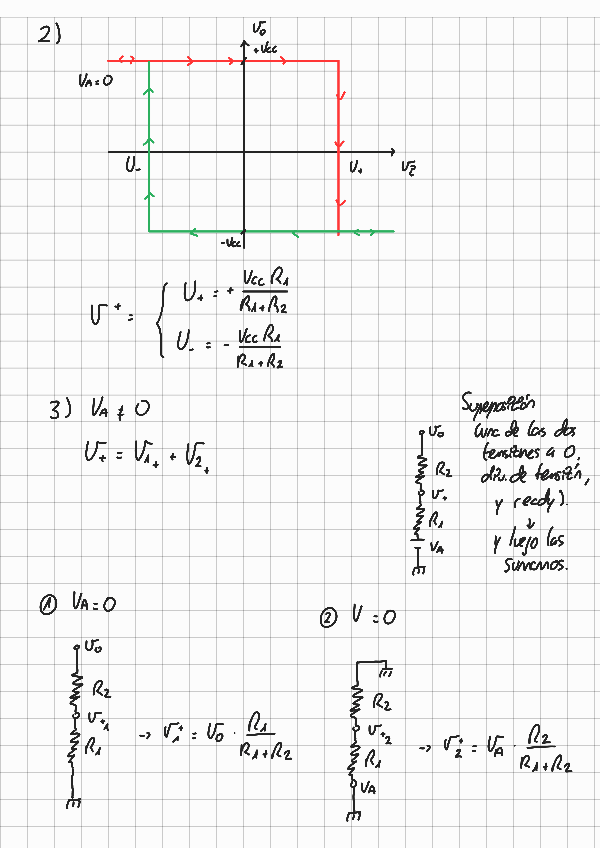 2)
v₀
+Vcc
VA=0
U₋
U₊
-Vcc
v⁺ = { U₊ = + Vcc R₁ / R₁+R₂
U₋ = - Vcc R₁ / R₁+R₂
3) VA ≠ 0
v₊ = v₁₊ + v₂₊
v₀
R₂
v₊
R₁
VA
Superposición
(una de las dos
tensiones a 0,
div. de tensión,
y ready).
↓
y luego las
sumamos.
① VA=0
v₀
R₂
v₊₁
R₁
→ v₁⁺ = v₀ · R₁ / R₁+R₂
② V =0
R₂
v₊₂
R₁
VA
→ v₂⁺ = VA · R₂ / R₁+R₂